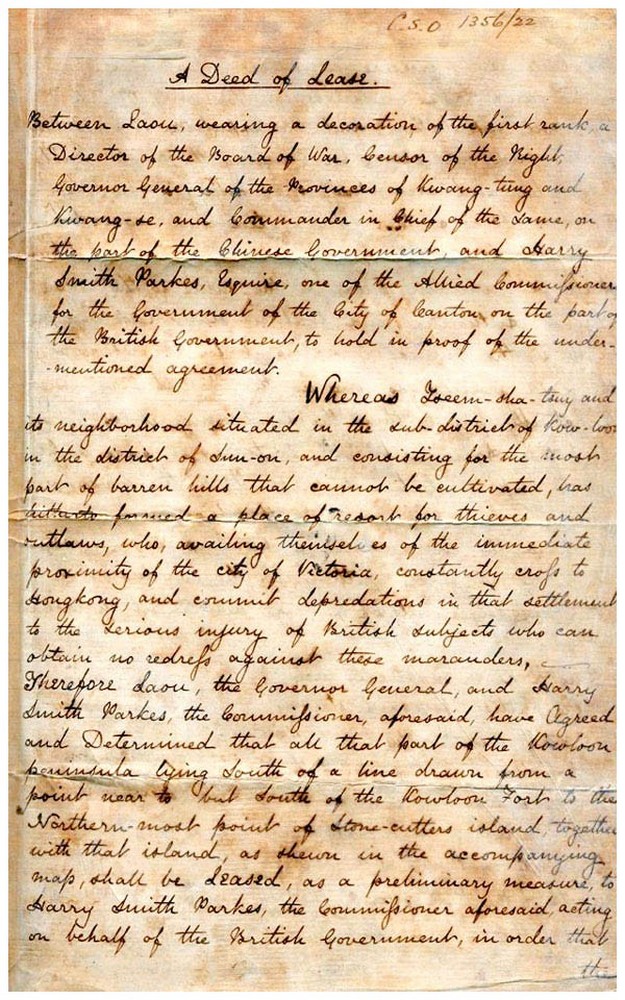 C.S.O 1356/22
A Deed of Lease.
Between Laou, wearing a decoration of the first rank, a
Director of the Board of War, Censor of the Right,
Governor General of the Provinces of Kwang-tung and
Kwang-se, and Commander in Chief of the Same, on
the part of the Chinese Government, and Harry
Smith Parkes, Esquire, one of the Allied Commissioner
for the Government of the City of Canton, on the part of
the British Government, to hold in proof of the under-
-mentioned agreement.
Whereas Tseem-sha-tsuy and
its neighborhood situated in the sub-district of Kow-loon
in the district of Sun-on, and consisting for the most
part of barren hills that cannot be cultivated, has
hitherto formed a place of resort for thieves and
outlaws, who, availing themselves of the immediate
proximity of the city of Victoria, constantly cross to
Hongkong, and commit depredations in that settlement
to the serious injury of British subjects who can
obtain no redress against these marauders,
Therefore Laou, the Governor General, and Harry
Smith Parkes, the Commissioner, aforesaid, have Agreed
and Determined that all that part of the Kowloon
peninsula lying South of a line drawn from a
point near to but South of the Kowloon Fort to the
Northern-most point of Stone-cutters island, together
with that island, as shewn in the accompanying
map, shall be Leased, as a preliminary measure, to
Harry Smith Parkes, the Commissioner aforesaid, acting
on behalf of the British Government, in order that
the